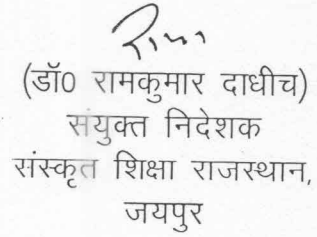 (डॉ0 रामकुमार दाधीच)
संयुक्त निदेशक
संस्कृत शिक्षा राजस्थान,
जयपुर